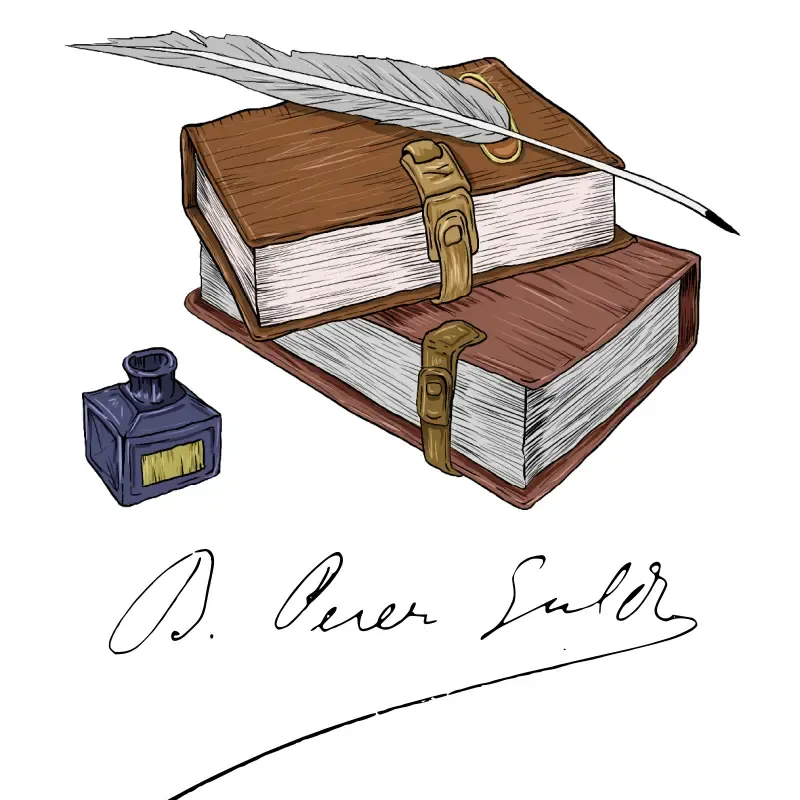 B. Perez Galdos